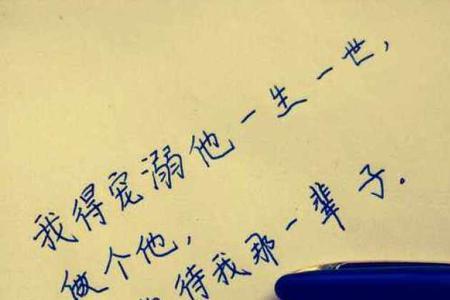 我得宠溺他一生一世，
做个他，
待我那一辈子．